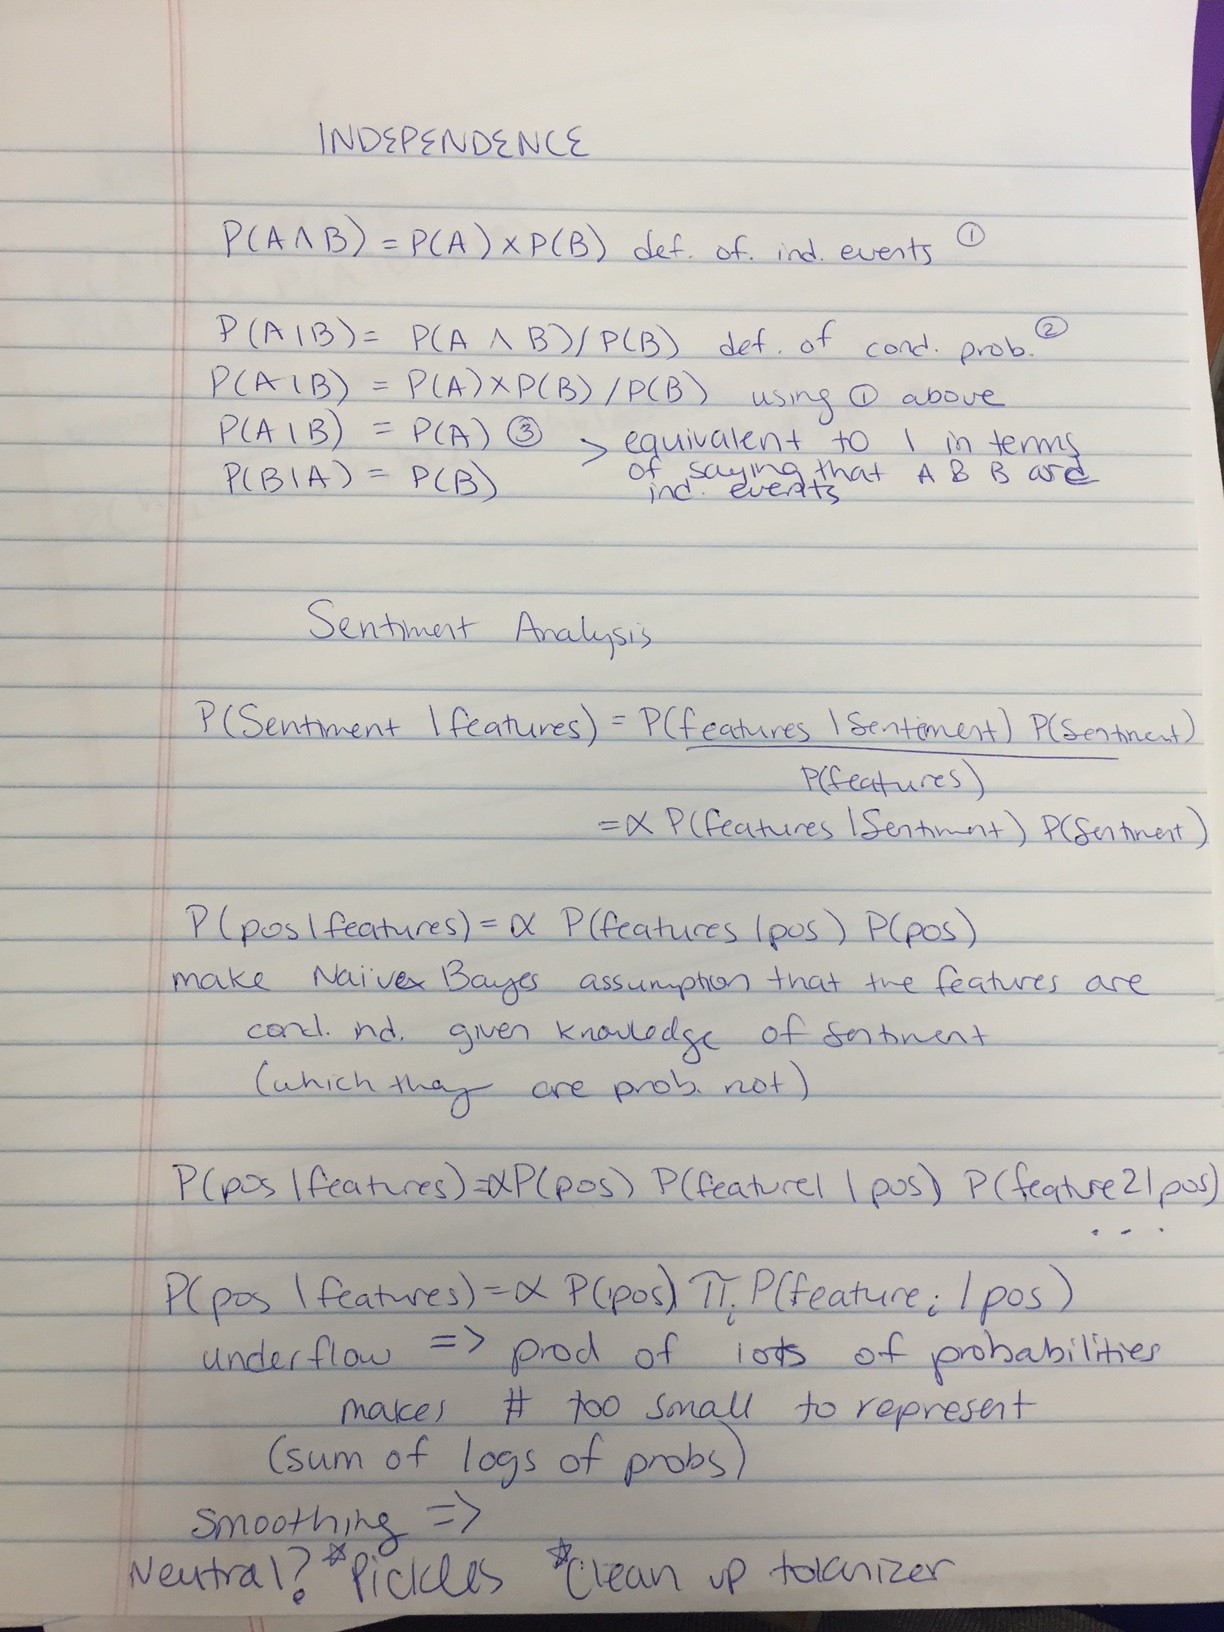 INDEPENDENCE
P(A ∧ B) = P(A) × P(B) def. of. ind. events ①
P(A|B) = P(A ∧ B)/P(B) def. of cond. prob. ②
P(A|B) = P(A)×P(B)/P(B) using ① above
P(A|B) = P(A) ③ > equivalent to 1 in terms
P(B|A) = P(B) of saying that A B B are
ind. events
Sentiment Analysis
P(Sentiment | features) = P(features | Sentiment) P(Sentiment)
P(features)
= α P(features | Sentiment) P(Sentiment)
P(pos|features) = α P(features |pos) P(pos)
make Naive Bayes assumption that the features are
cond. ind. given knowledge of sentiment
(which they are prob. not)
P(pos | features) = αP(pos) P(feature1 | pos) P(feature2|pos)
...
P(pos | features) = α P(pos) ∏i P(featurei | pos)
underflow => prod of lots of probabilities
makes # too small to represent
(sum of logs of probs)
smoothing =>
Neutral? *Pickles *Clean up tokanizer